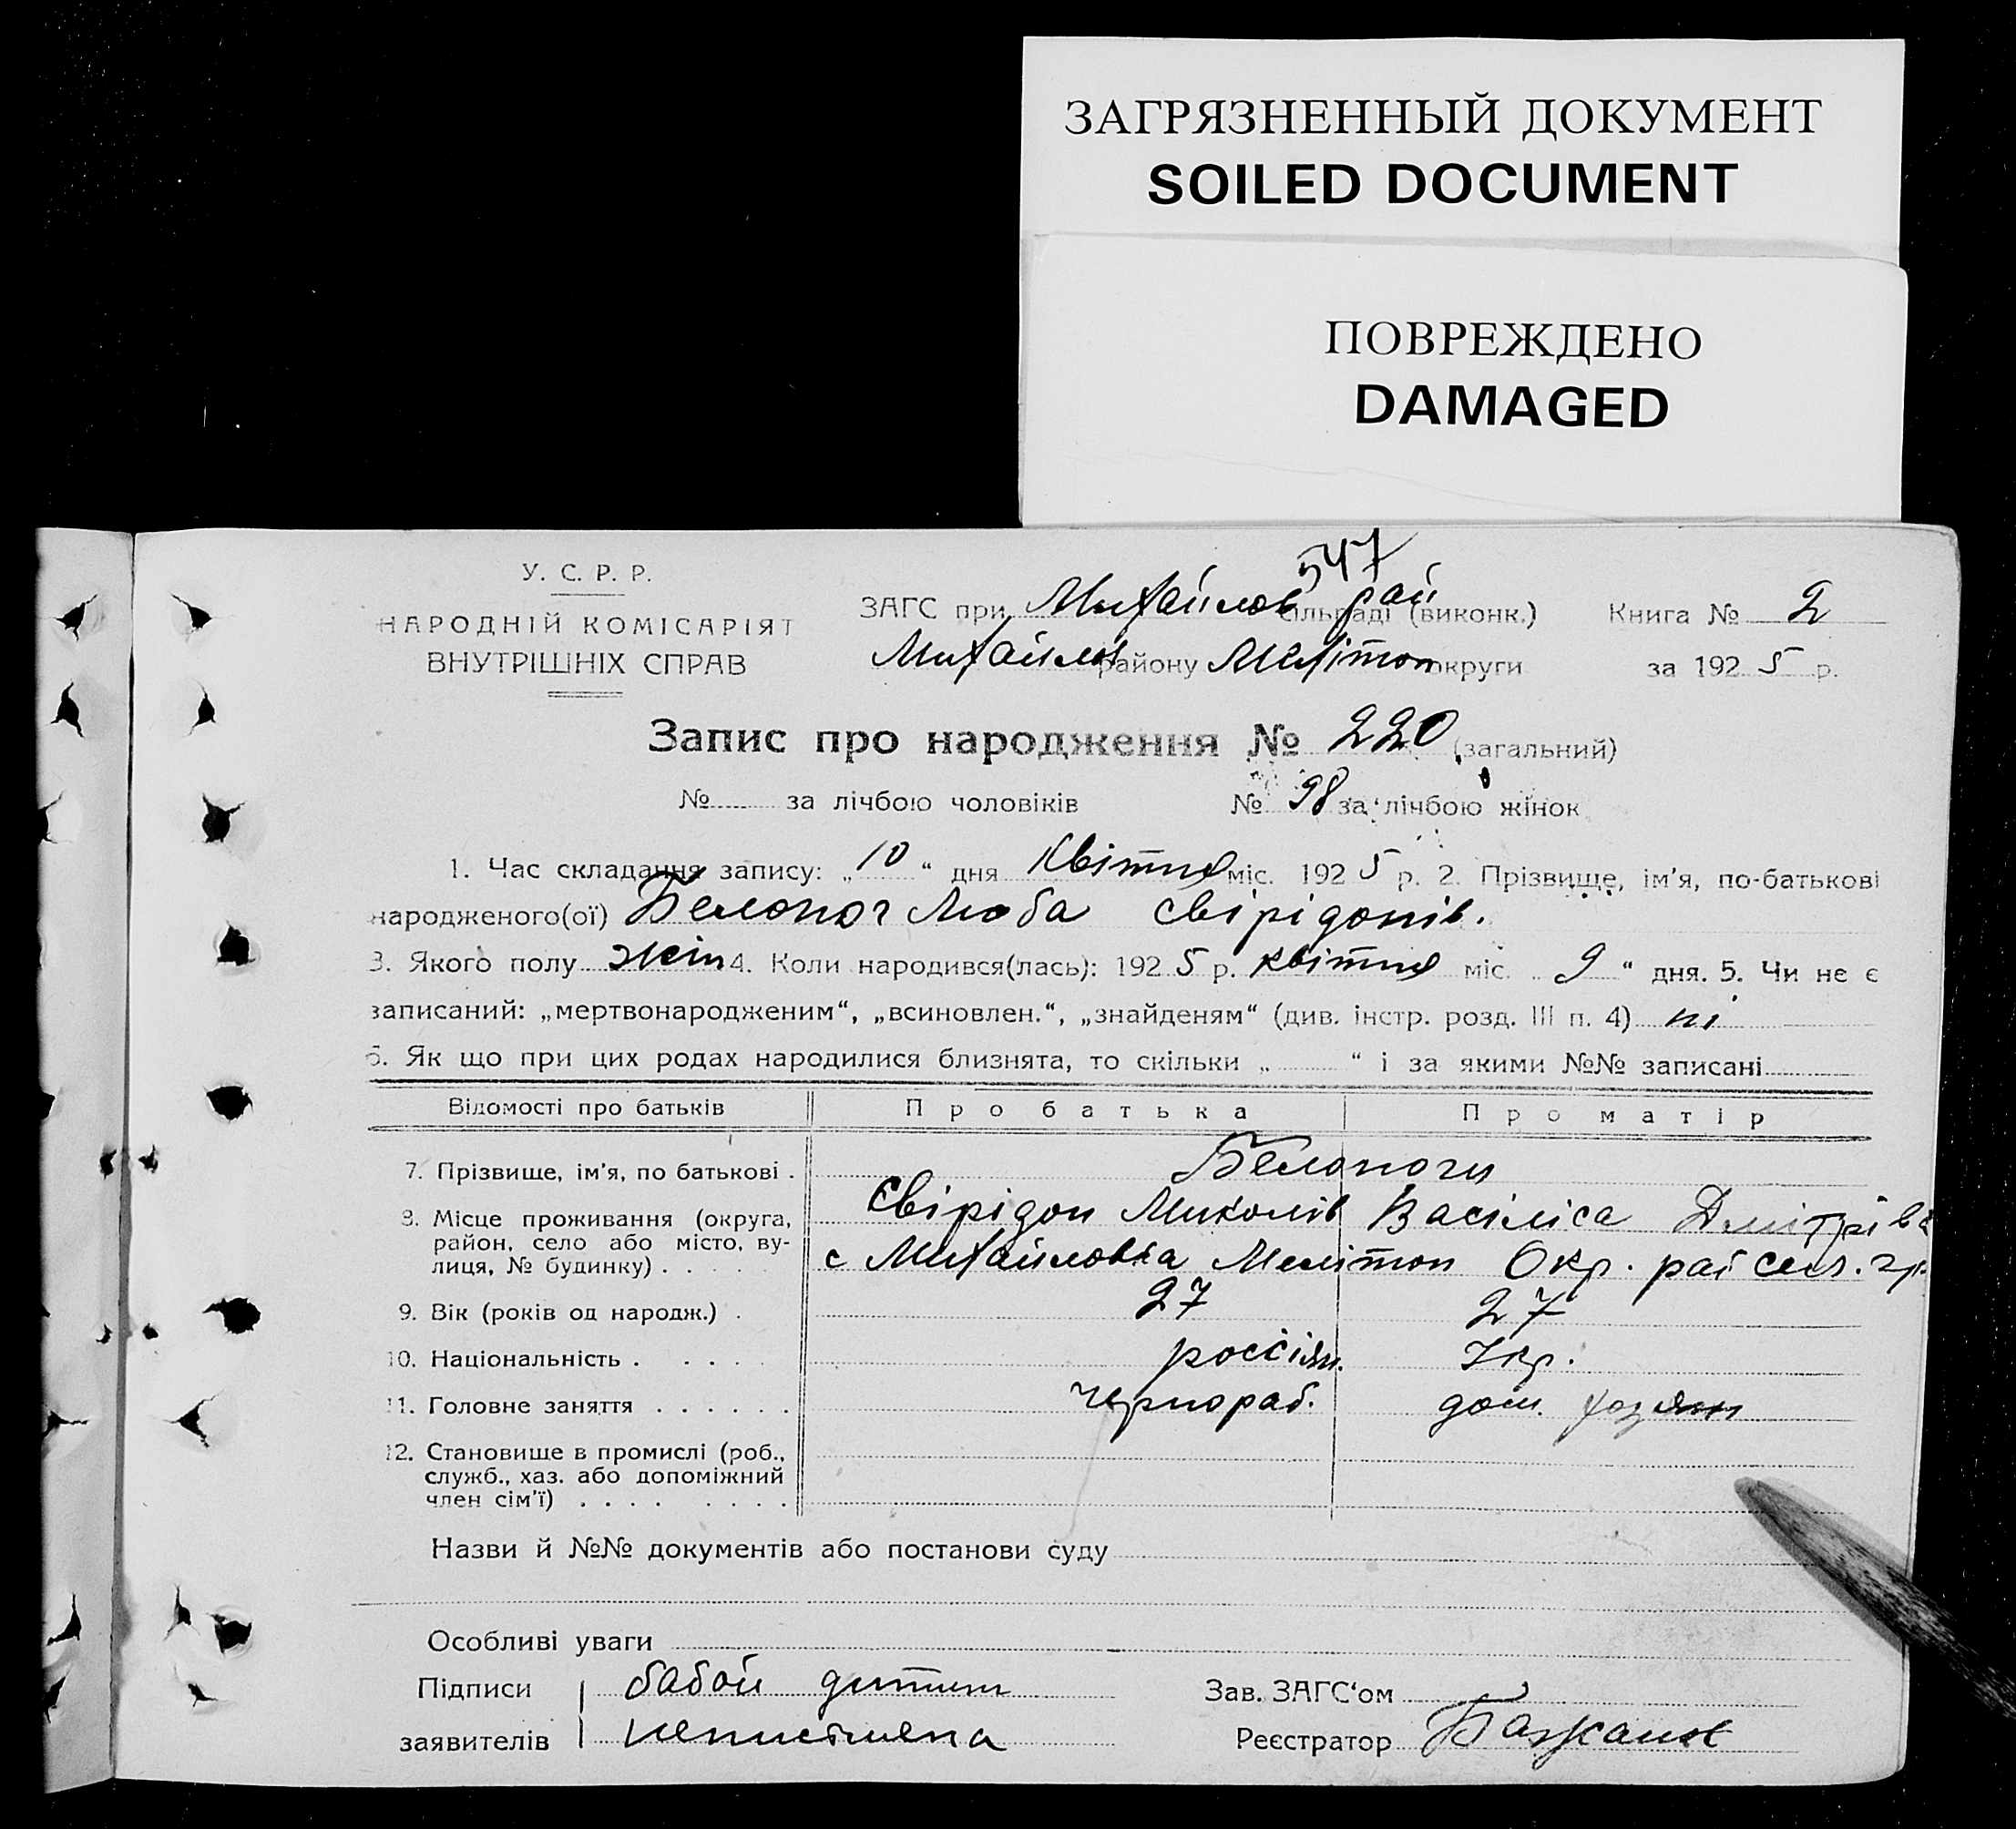 ЗАГРЯЗНЕННЫЙ ДОКУМЕНТ
SOILED DOCUMENT
ПОВРЕЖДЕНО
DAMAGED
547
У. С. Р. Р.
НАРОДНІЙ КОМІСАРІЯТ
ВНУТРІШНІХ СПРАВ
ЗАГС при Михайлов рай сільраді (виконк.) Книга № 2
Михайлов району Мелітоп округи за 1925 р.
Запис про народження № 220 (загальний)
№ за лічбою чоловіків № 98 за лічбою жінок
1. Час складання запису: „10“ дня Квітня міс. 1925 р. 2. Прізвище, ім'я, по-батькові
народженого(ої) Белоног Люба Свірідонів.
3. Якого полу жін 4. Коли народився(лась): 1925 р. квітня міс. 9“ дня. 5. Чи не є
записаний: „мертвонародженим“, „всиновлен.“, „знайденям“ (див. інстр. розд. III п. 4) ні
6. Як що при цих родах народилися близнята, то скільки „ “ і за якими №№ записані
Відомості про батьків Про батька Про матір
7. Прізвище, ім'я, по батькові . Белоноги
Свірідон Миколів Васіліса Дмітріва
8. Місце проживання (округа,
район, село або місто, ву-
лиця, № будинку) . . . . . с Михайловка Мелітоп Окр. рай
9. Вік (років од народж.) . 27 27
10. Національність . . . . . россіян. Укр.
11. Головне заняття . . . . . . чернораб. дом. хозян
12. Становище в промислі (роб.,
служб., хаз. або допоміжний
член сім'ї) . . . . . . . .
Назви й №№ документів або постанови суду
Особливі уваги
Підписи бабой Зав. ЗАГС‘ом
заявителів неписьмена Реєстратор Бажанов